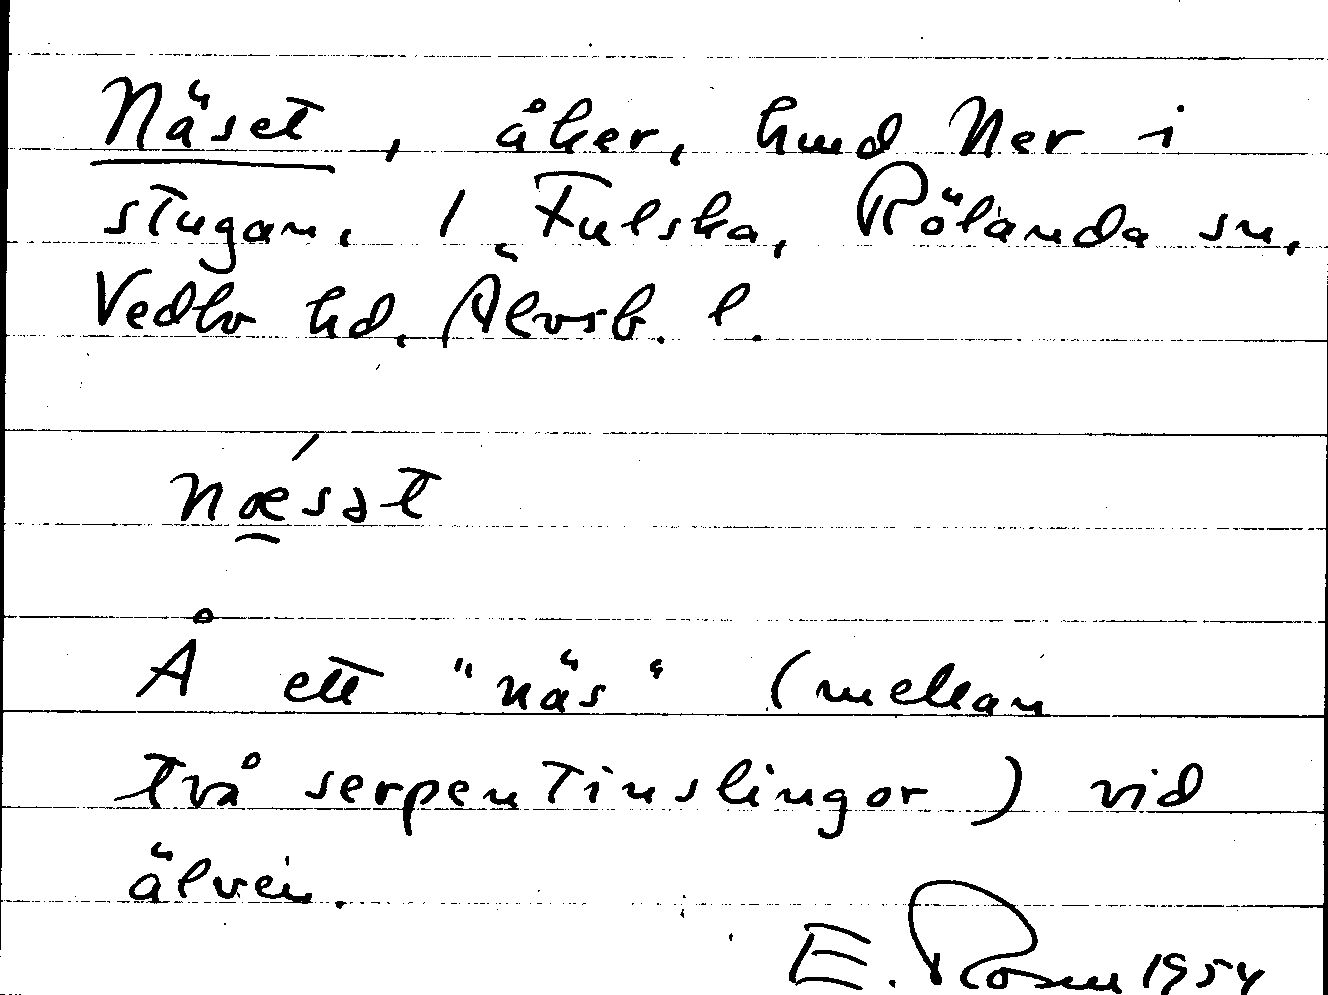 Näset, åker, hmd Ner i
stugan, 1 Fulska, Rölanda sn,
Vedbo hd. Älvsb. l.
næ´sət
Å ett "näs" (mellan
två serpentinslingor) vid
älven.
E. Rosén 1954